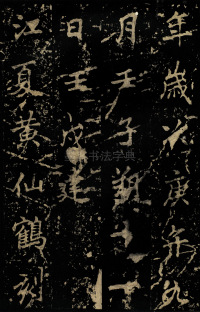 年歲次庚午九
月壬子朔十一
日壬戌建
江夏黃仙鶴刻
书法字典